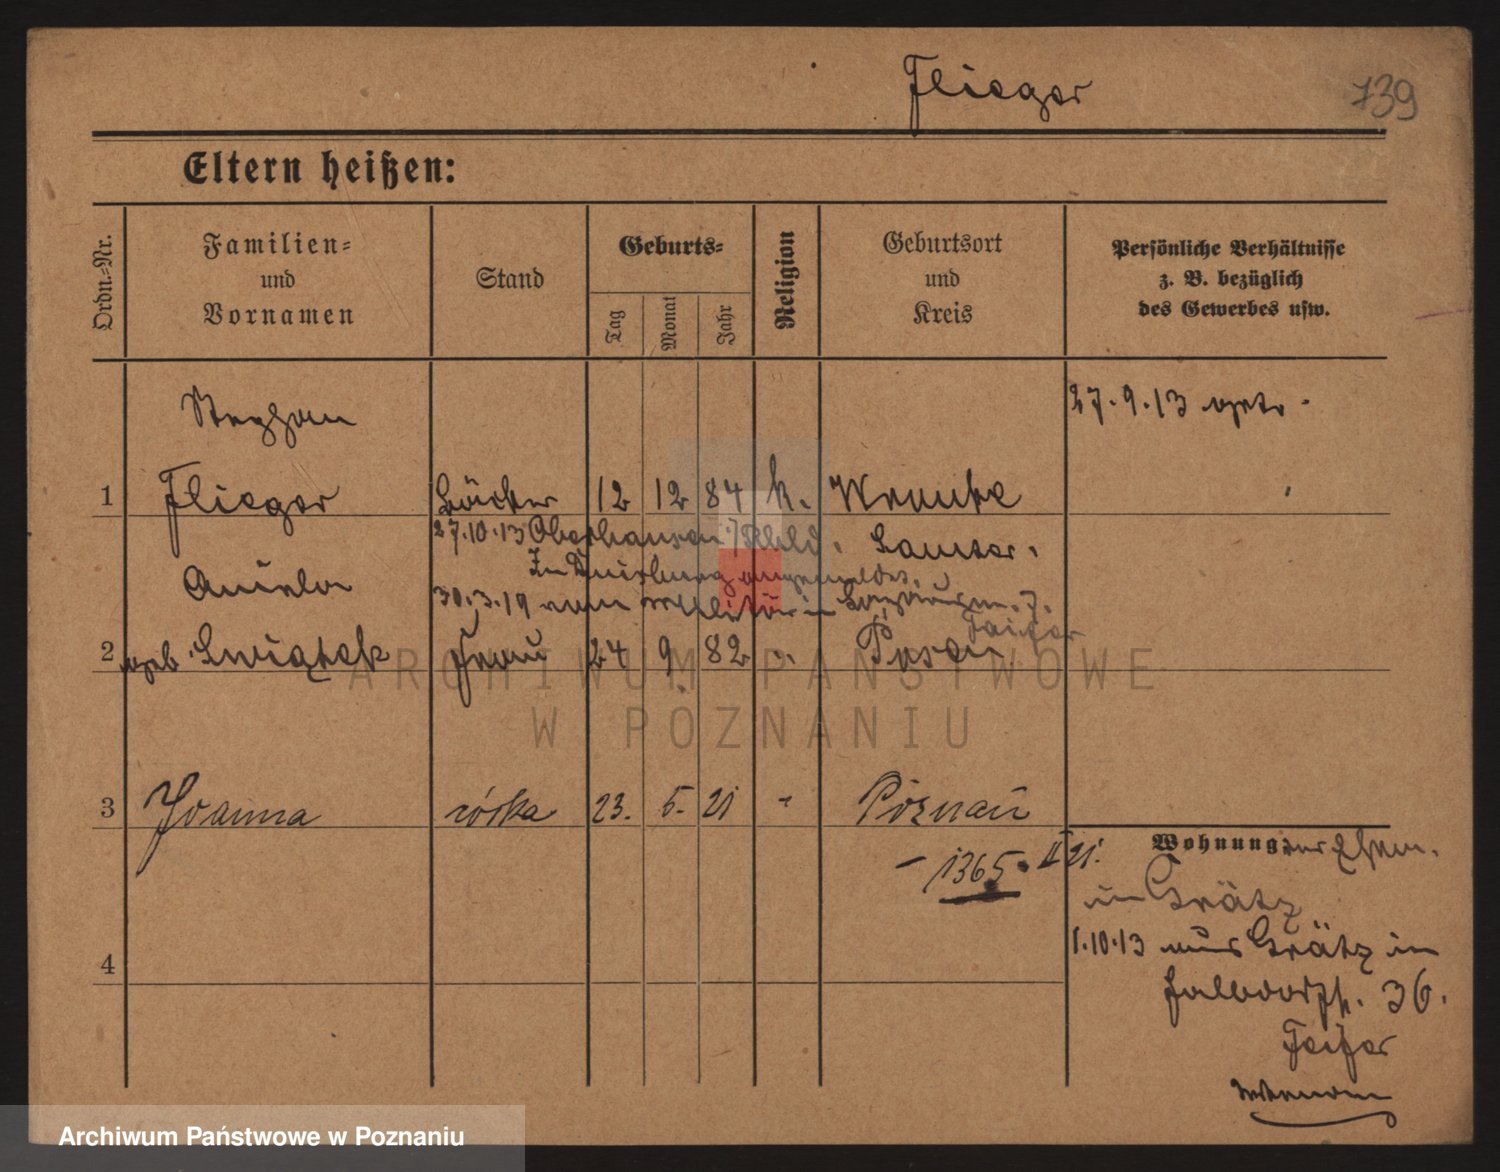 Flieger
739
Eltern heißen:
Ordn.-Nr.
Familien-
und
Vornamen
Stand
Geburts-
Tag
Monat
Jahr
Religion
Geburtsort
und
Kreis
Persönliche Verhältnisse
z. B. bezüglich
des Gewerbes usw.
Stephan
27.9.13
1 Flieger Bäcker 12 12 84 k. Wronke
27.10.13 Oberhausen Samter.
Aniela In Duisburg angemeldet.
30.3.19 vom Militär in
2 geb. Swiątek Frau 24 9 82 " Posen
ARCHIWUM PAŃSTWOWE
W POZNANIU
3 Joanna córka 23. 5. 21 - Poznań
Wohnung
- 1365. II 21.
in Grätz
1.10.13 aus Grätz in
4
Halbdorfstr. 36.
Feifer
Archiwum Państwowe w Poznaniu